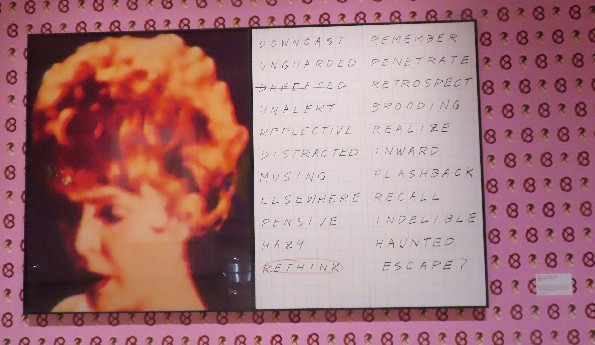 DOWNCAST REMEMBER
UNGUARDED PENETRATE
RETROSPECT
UNALERT BROODING
REFLECTIVE REALIZE
DISTRACTED INWARD
MUSING FLASHBACK
ELSEWHERE RECALL
PENSIVE INDELIBLE
HAZY HAUNTED
RETHINK ESCAPE?